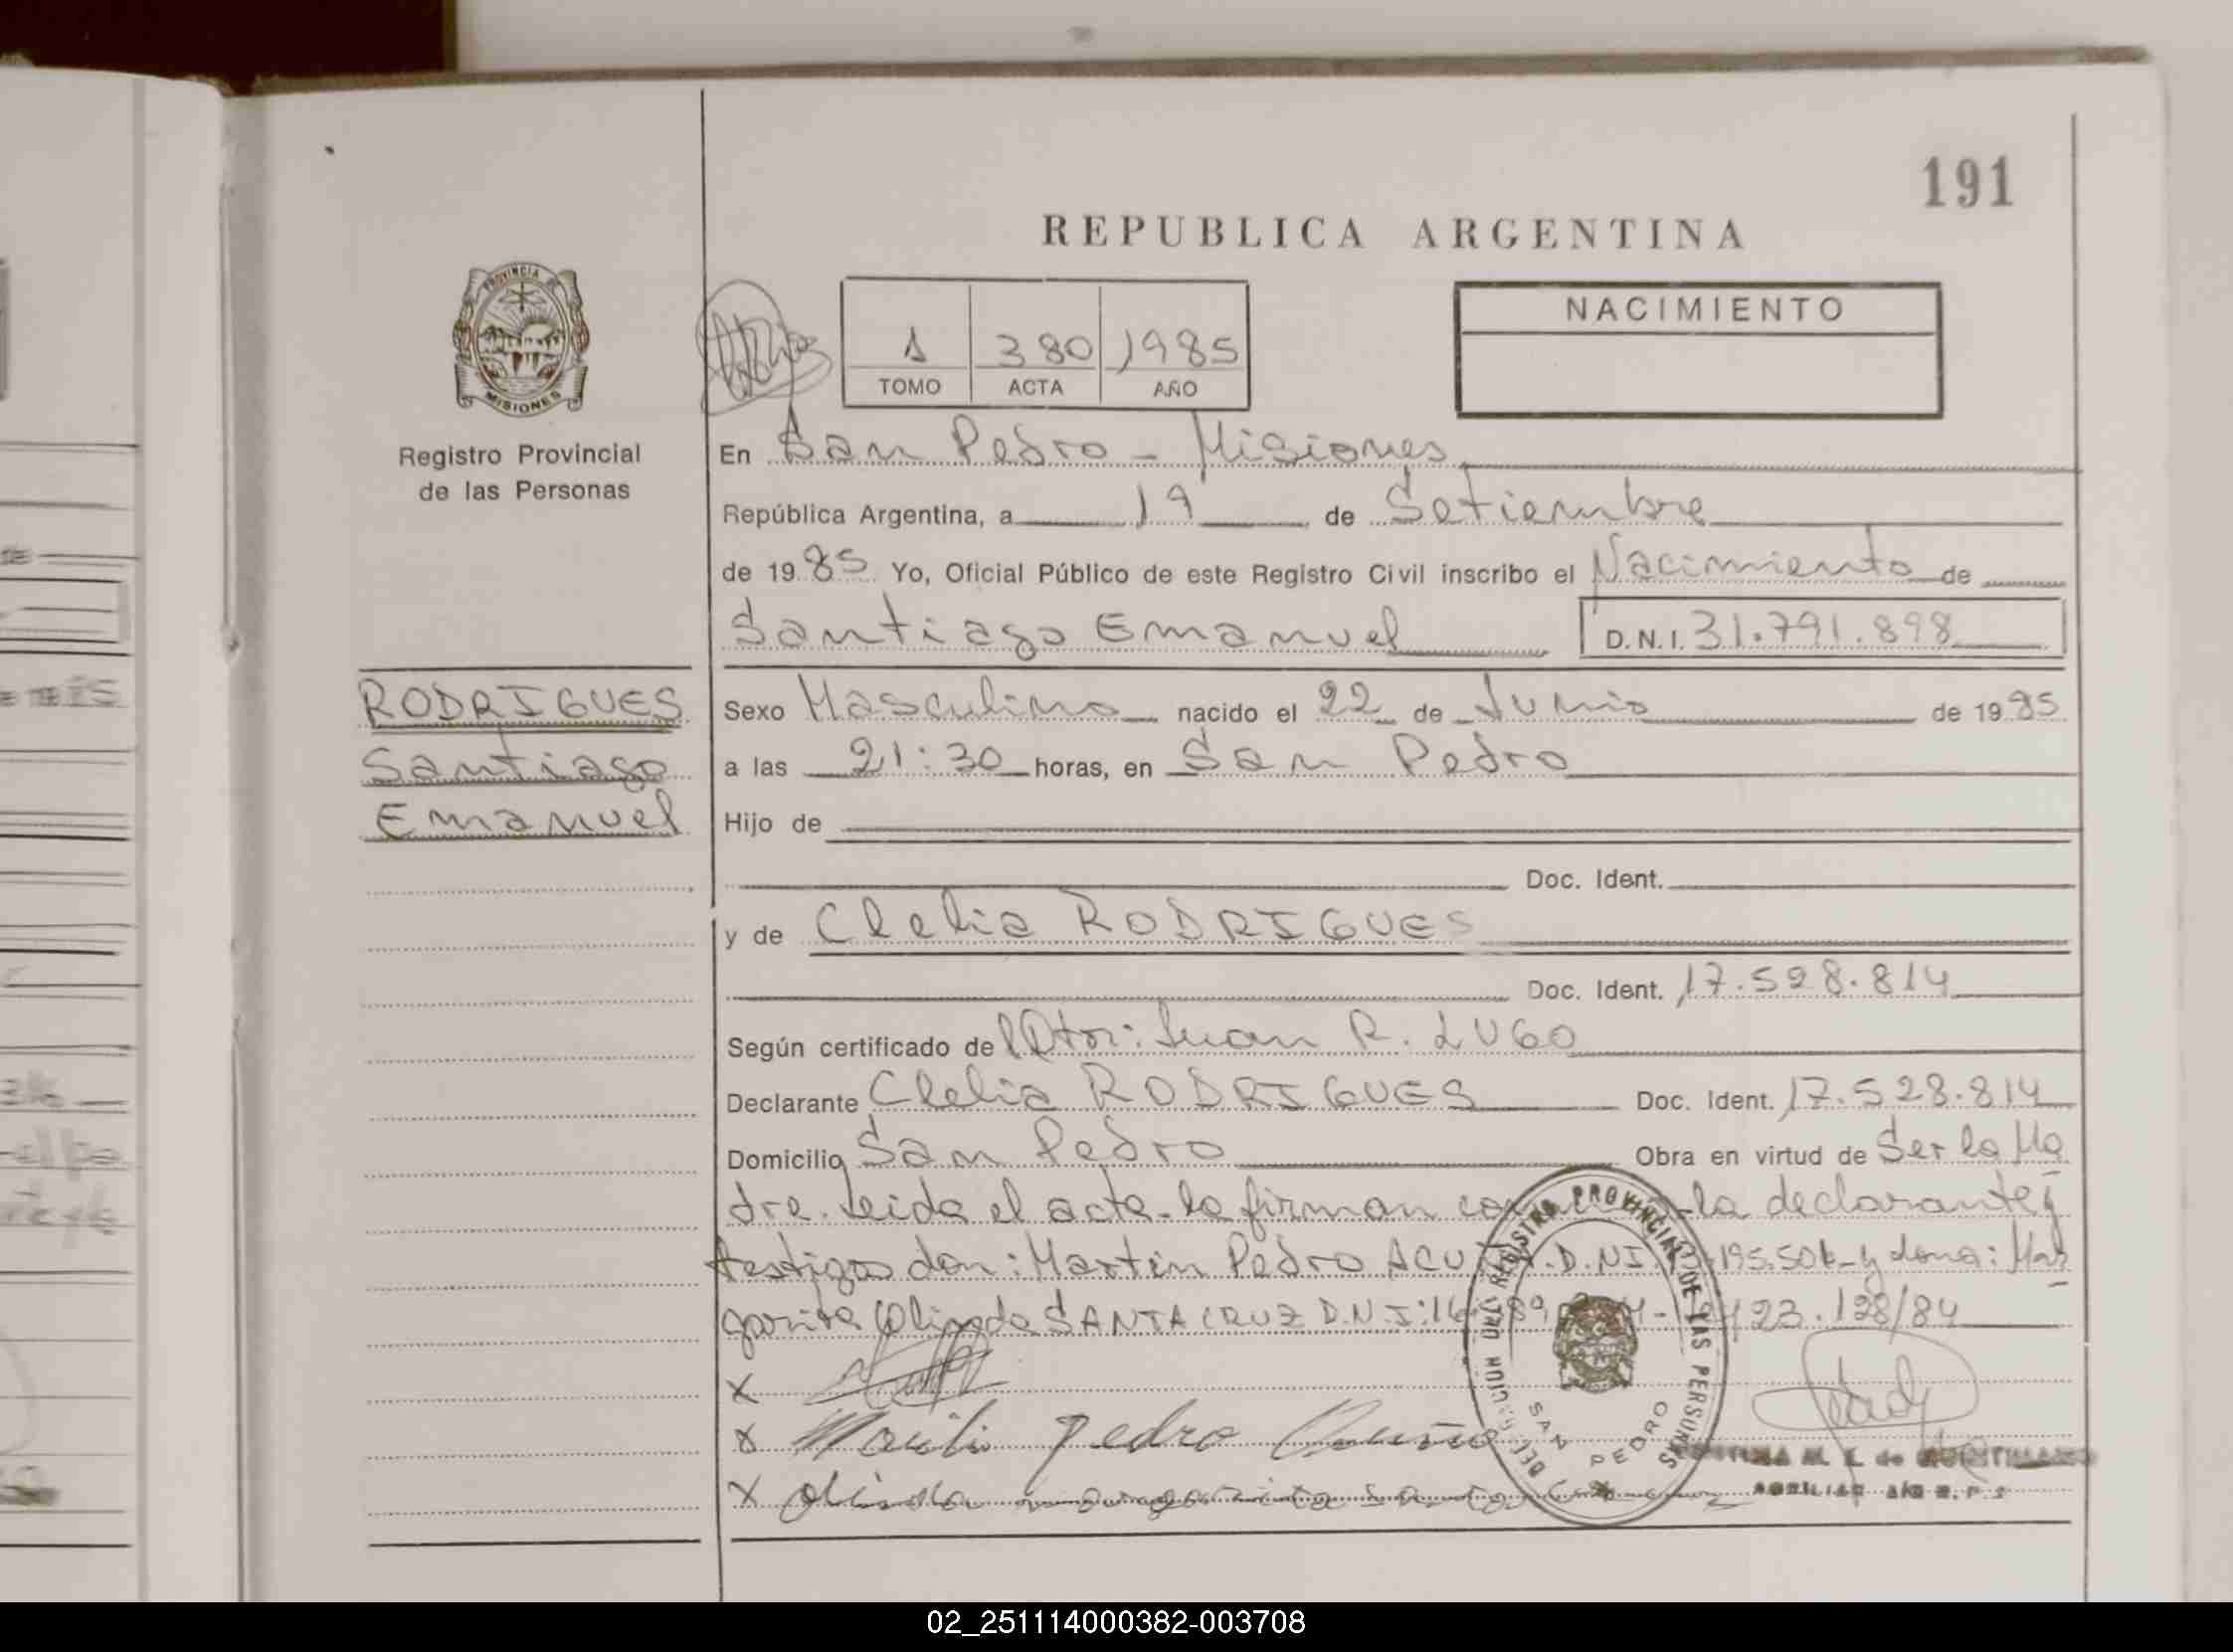 191
REPUBLICA ARGENTINA
PROVINCIA DE
MISIONES
Registro Provincial
de las Personas
1 380 1985
TOMO ACTA AÑO
NACIMIENTO
En San Pedro - Misiones
República Argentina, a 19 de Setiembre
de 1985 Yo, Oficial Público de este Registro Civil inscribo el Nacimiento de
Santiago Emanuel D.N.I. 31.791.898
RODRIGUES
Santiago
Emanuel
Sexo Masculino nacido el 22 de Junio de 1985
a las 21:30 horas, en San Pedro
Hijo de
Doc. Ident.
y de Clelia RODRIGUES
Doc. Ident. 17.528.814
Según certificado de Dtor: Juan R. LUGO
Declarante Clelia RODRIGUES Doc. Ident. 17.528.814
Domicilio San Pedro Obra en virtud de Ser la Ma
dre. Leida el acta la firman la declarante y
testigos don: Martín Pedro D.N.I. y dona: Mar
garita Olinda SANTA CRUZ D.N.I: 23.128/84
x
x Pedro
x olinda margarita santa
REGISTRO PROVINCIAL DE LAS PERSONAS
SAN PEDRO
02_251114000382-003708